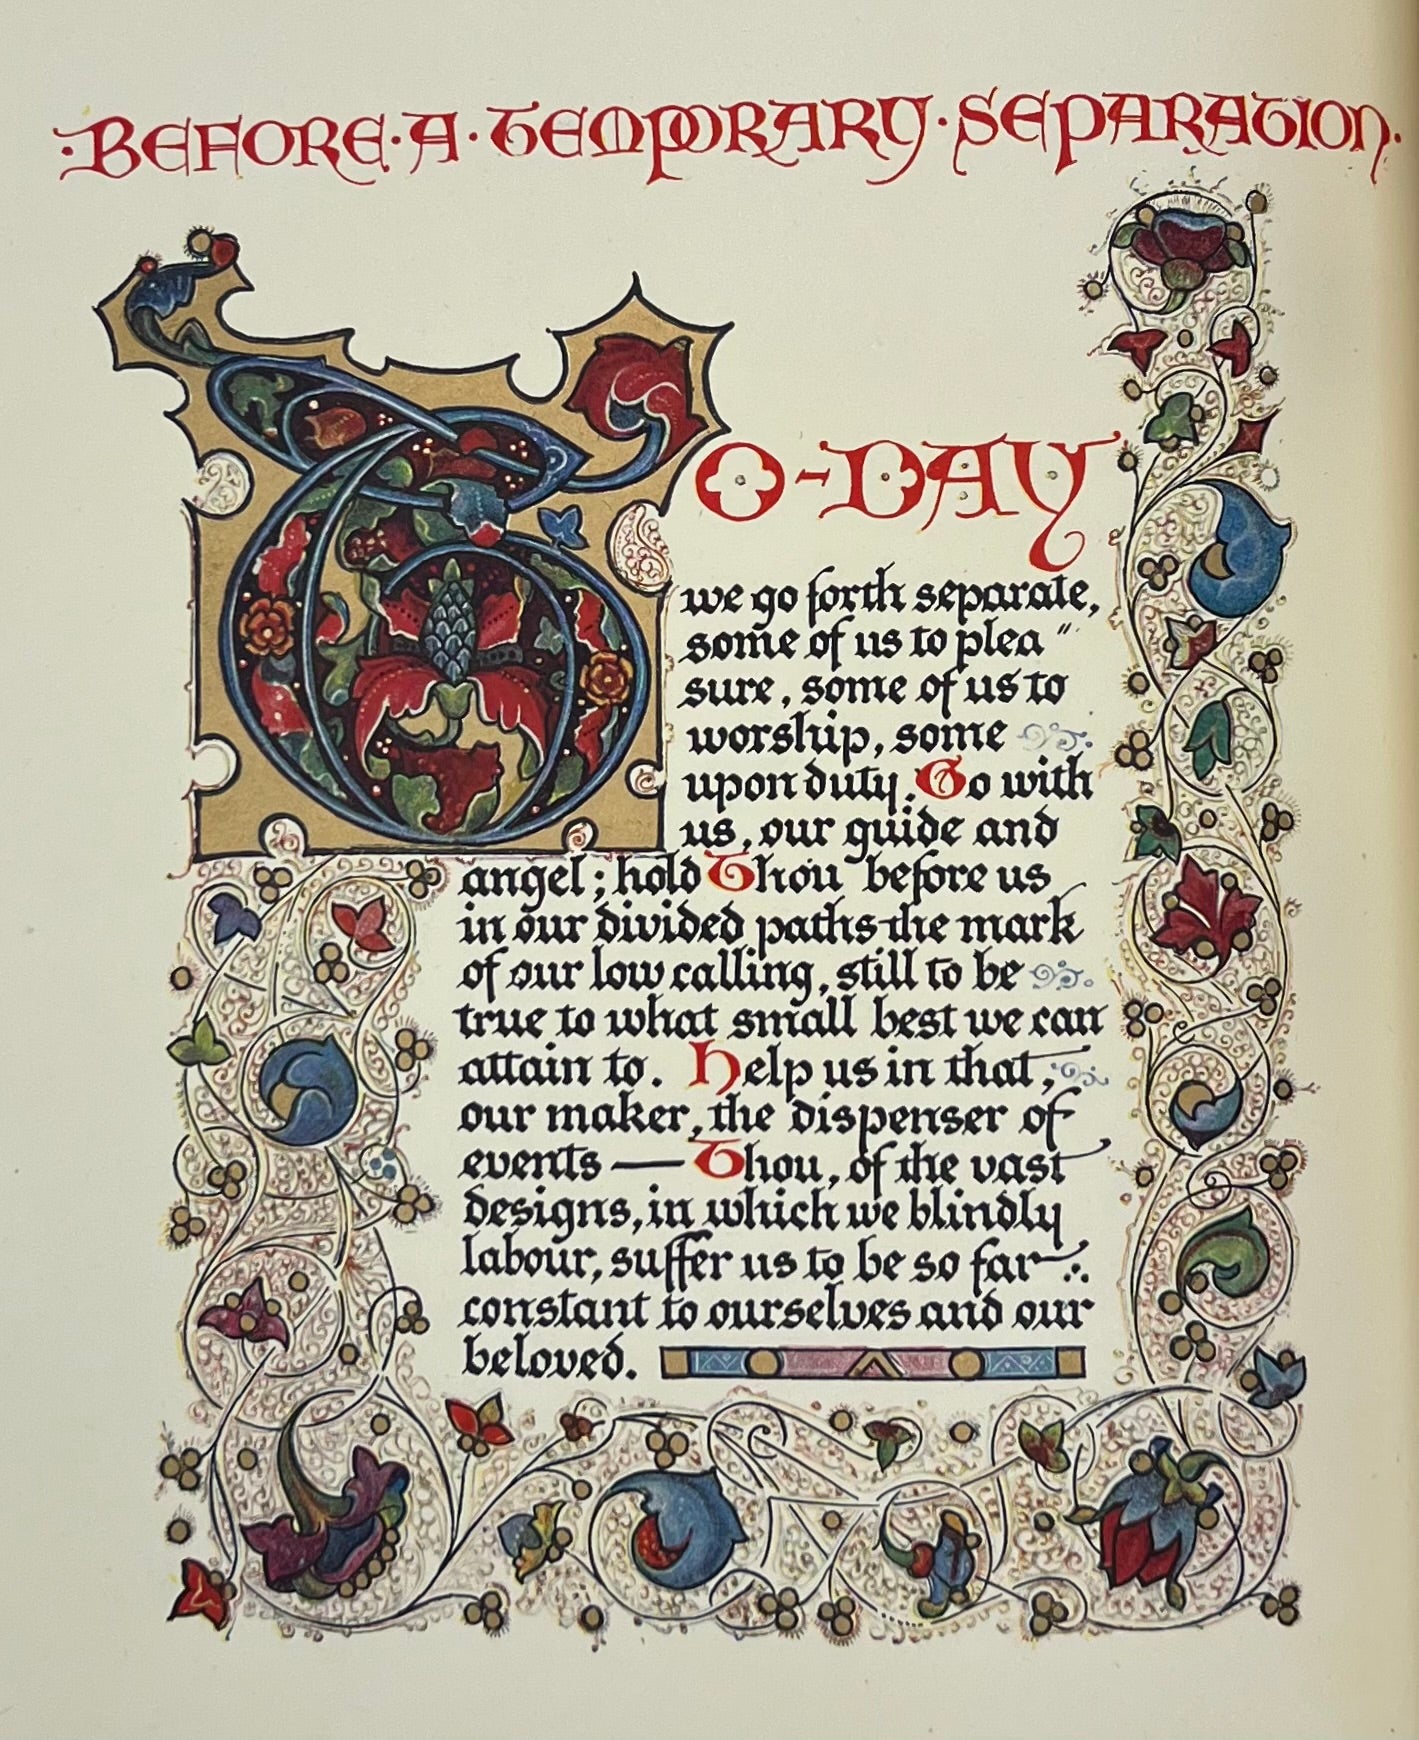 ·BEFORE·A·TEMPORARY·SEPARATION·
TO-DAY
we go forth separate,
some of us to plea"
sure, some of us to
worship, some
upon duty. Go with
us, our guide and
angel; hold Thou before us
in our divided paths the mark
of our low calling, still to be
true to what small best we can
attain to. Help us in that,
our maker, the dispenser of
events — Thou, of the vast
designs, in which we blindly
labour, suffer us to be so far
constant to ourselves and our
beloved.